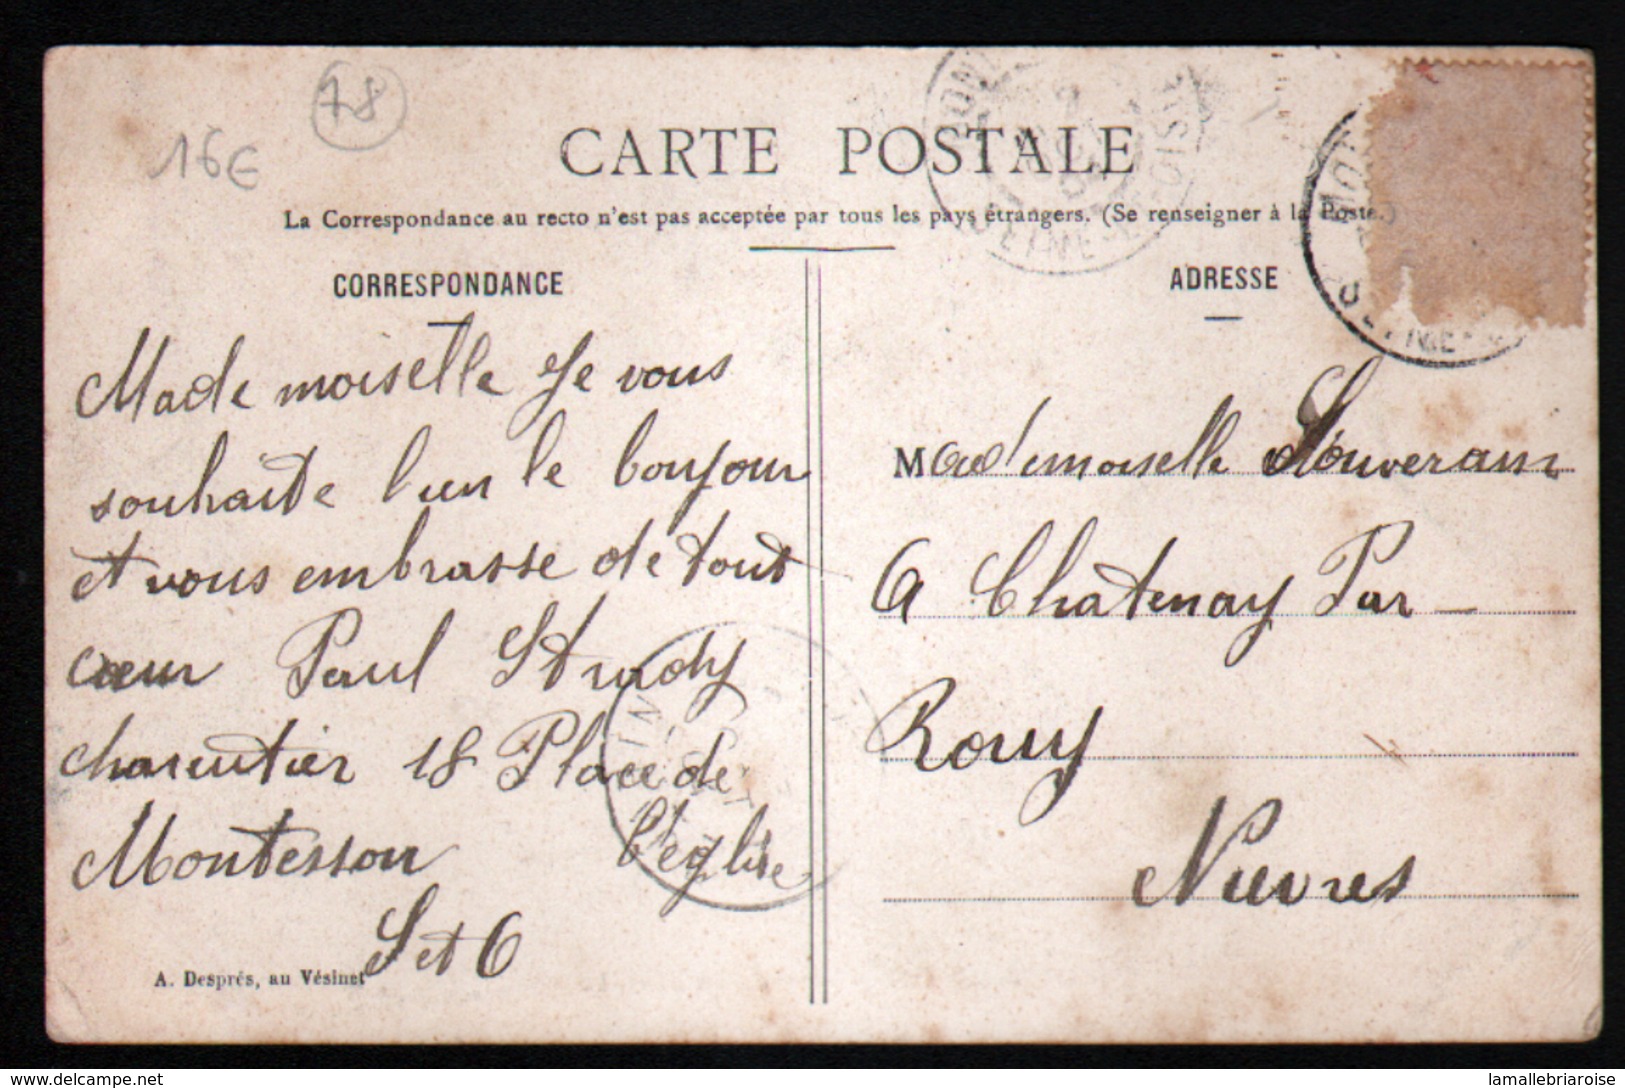 78
16€
CARTE POSTALE
La Correspondance au recto n'est pas acceptée par tous les pays étrangers. (Se renseigner à la Poste.)
CORRESPONDANCE
Made moiselle Je vous
souhaite bien le bonjour
et vous embrasse de tout
cœur Paul Strudy
charentier 18 Place de
Montesson l'eglise
S et O
A. Després, au Vésinet
ADRESSE
Mademoiselle Souverain
A Chatenay Par
Rouy
Nievres
www.delcampe.net
lamallebriaroise